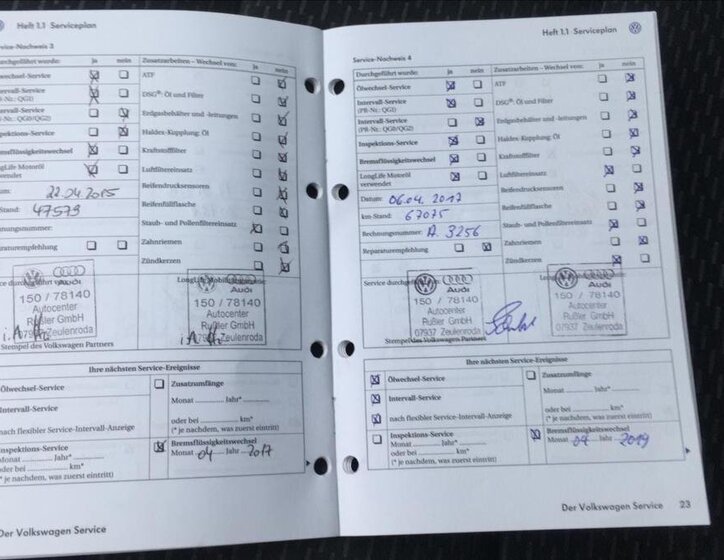 Heft 1.1 Serviceplan
Service-Nachweis 3
Durchgeführt wurde: ja nein
Ölwechsel-Service
Intervall-Service
(PR-Nr.: QG1)
Intervall-Service
(PR-Nr.: QG0/QG2)
Inspektions-Service
Bremsflüssigkeitswechsel
LongLife Motoröl
verwendet
Datum: 22.04.2015
km-Stand: 47573
Rechnungsnummer:
Reparaturempfehlung
Zusatzarbeiten – Wechsel von: ja nein
ATF
DSG®: Öl und Filter
Erdgasbehälter und -leitungen
Haldex-Kupplung: Öl
Kraftstofffilter
Luftfiltereinsatz
Reifendrucksensoren
Reifenfüllflasche
Staub- und Pollenfiltereinsatz
Zahnriemen
Zündkerzen
Audi
150 / 78140
Autocenter
Rußler GmbH
07937 Zeulenroda
Audi
150 / 78140
Autocenter
Rußler GmbH
07937 Zeulenroda
i.A
i.A
Stempel des Volkswagen Partners
Ihre nächsten Service-Ereignisse
Ölwechsel-Service
Intervall-Service
nach flexibler Service-Intervall-Anzeige
Inspektions-Service
Monat ........ Jahr* ........
oder bei ........ km*
(* je nachdem, was zuerst eintritt)
Zusatzumfänge
Monat ........ Jahr* ........
oder bei ........ km*
(* je nachdem, was zuerst eintritt)
Bremsflüssigkeitswechsel
Monat 04 Jahr 2017
Der Volkswagen Service
Heft 1.1 Serviceplan
Service-Nachweis 4
Durchgeführt wurde: ja nein
Ölwechsel-Service
Intervall-Service
(PR-Nr.: QG1)
Intervall-Service
(PR-Nr.: QG0/QG2)
Inspektions-Service
Bremsflüssigkeitswechsel
LongLife Motoröl
verwendet
Datum: 06.04.2017
km-Stand: 67075
Rechnungsnummer: A. 3256
Reparaturempfehlung
Zusatzarbeiten – Wechsel von: ja nein
ATF
DSG®: Öl und Filter
Erdgasbehälter und -leitungen
Haldex-Kupplung: Öl
Kraftstofffilter
Luftfiltereinsatz
Reifendrucksensoren
Reifenfüllflasche
Staub- und Pollenfiltereinsatz
Zahnriemen
Zündkerzen
Audi
150 / 78140
Autocenter
Rußler GmbH
07937 Zeulenroda
Audi
150 / 78140
Autocenter
Rußler GmbH
07937 Zeulenroda
Stempel des Volkswagen Partners
Ihre nächsten Service-Ereignisse
Ölwechsel-Service
Intervall-Service
nach flexibler Service-Intervall-Anzeige
Inspektions-Service
Monat ........ Jahr* ........
oder bei ........ km*
(* je nachdem, was zuerst eintritt)
Zusatzumfänge
Monat ........ Jahr* ........
oder bei ........ km*
(* je nachdem, was zuerst eintritt)
Bremsflüssigkeitswechsel
Monat 04 Jahr 2019
Der Volkswagen Service 23